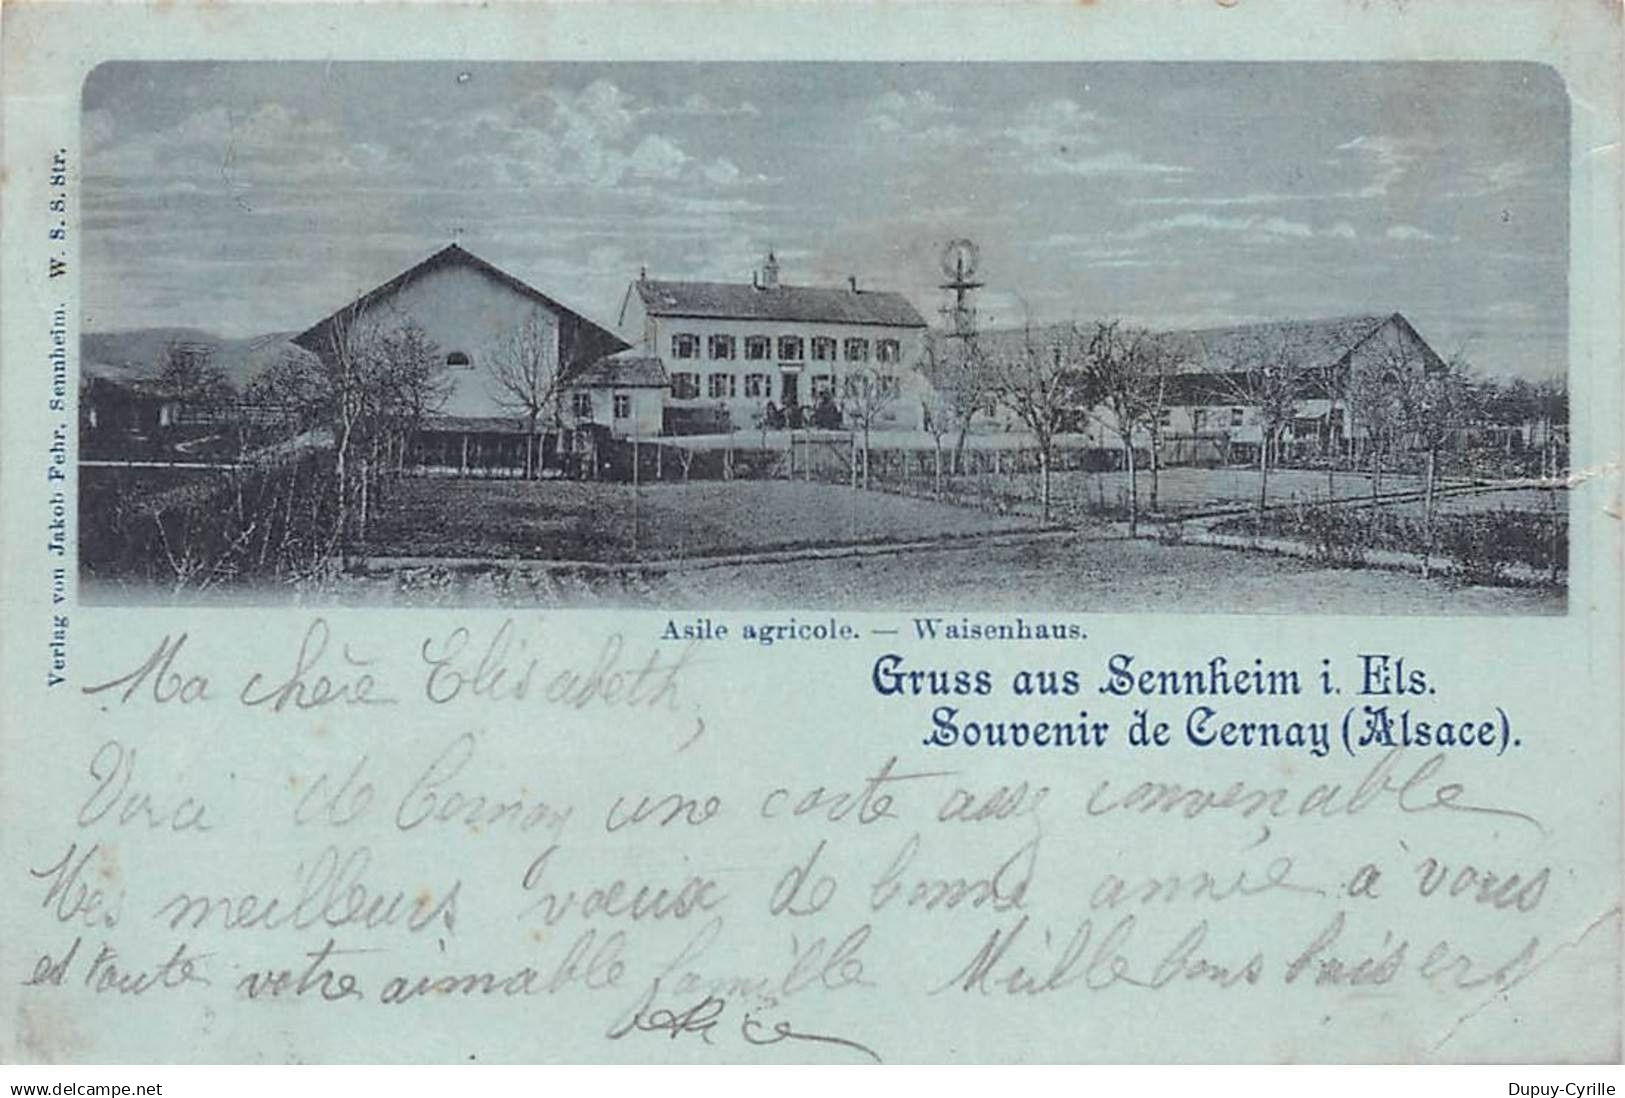 Verlag von Jakob Fehr, Sennheim. W. S. S. Str.
Asile agricole. — Waisenhaus.
Gruss aus Sennheim i. Els.
Souvenir de Cernay (Alsace).
Ma chère Elisabeth,
Voici de Cernay une carte assez convenable
Mes meilleurs vœux de bonne année à vous
et toute votre aimable famille Mille bons baisers
Alice
www.delcampe.net
Dupuy-Cyrille